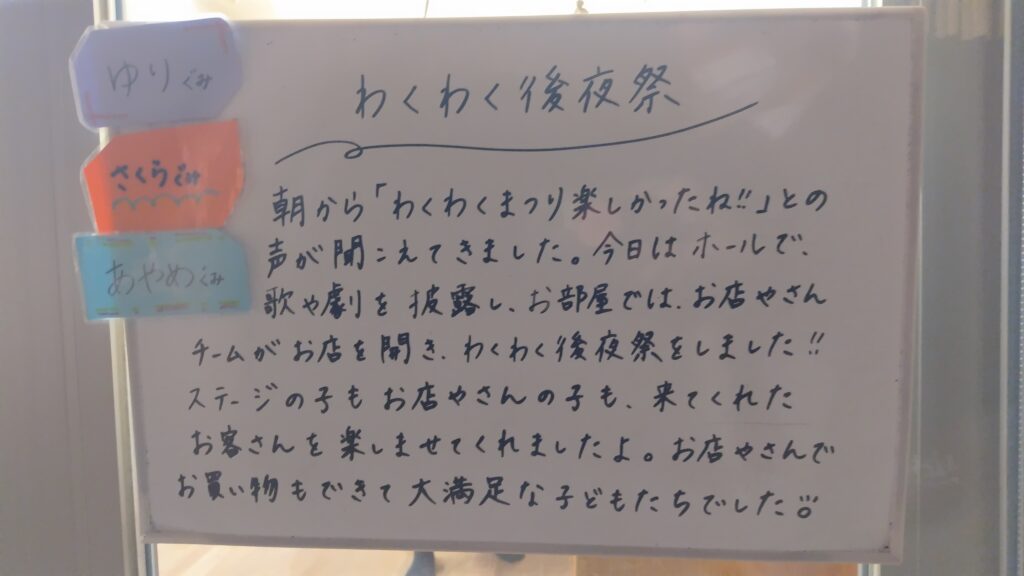 ゆりぐみ
さくらぐみ
あやめぐみ
わくわく後夜祭
朝から「わくわくまつり楽しかったね!!」との
声が聞こえてきました。今日はホールで、
歌や劇を披露し、お部屋では、お店やさん
チームがお店を開き、わくわく後夜祭をしました!!
ステージの子もお店やさんの子も、来てくれた
お客さんを楽しませてくれましたよ。お店やさんで
お買い物もできて大満足な子どもたちでした